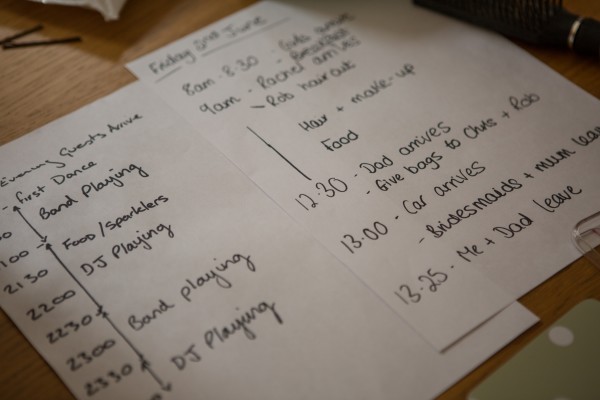 Friday 2nd June
8am - 8.30 - Girls arrive
Breakfast
9am - Rachel arrives
Rob haircut
Hair + make-up
Food
12:30 - Dad arrives
- Give bags to Chris + Rob
13:00 - Car arrives
- Bridesmaids + mum leave
13-25 - Me + Dad leave
Evening Guests Arrive
- First Dance
Band Playing
Food/Sparklers
DJ Playing
2130
2200
2230
Band playing
2300
DJ Playing
2330